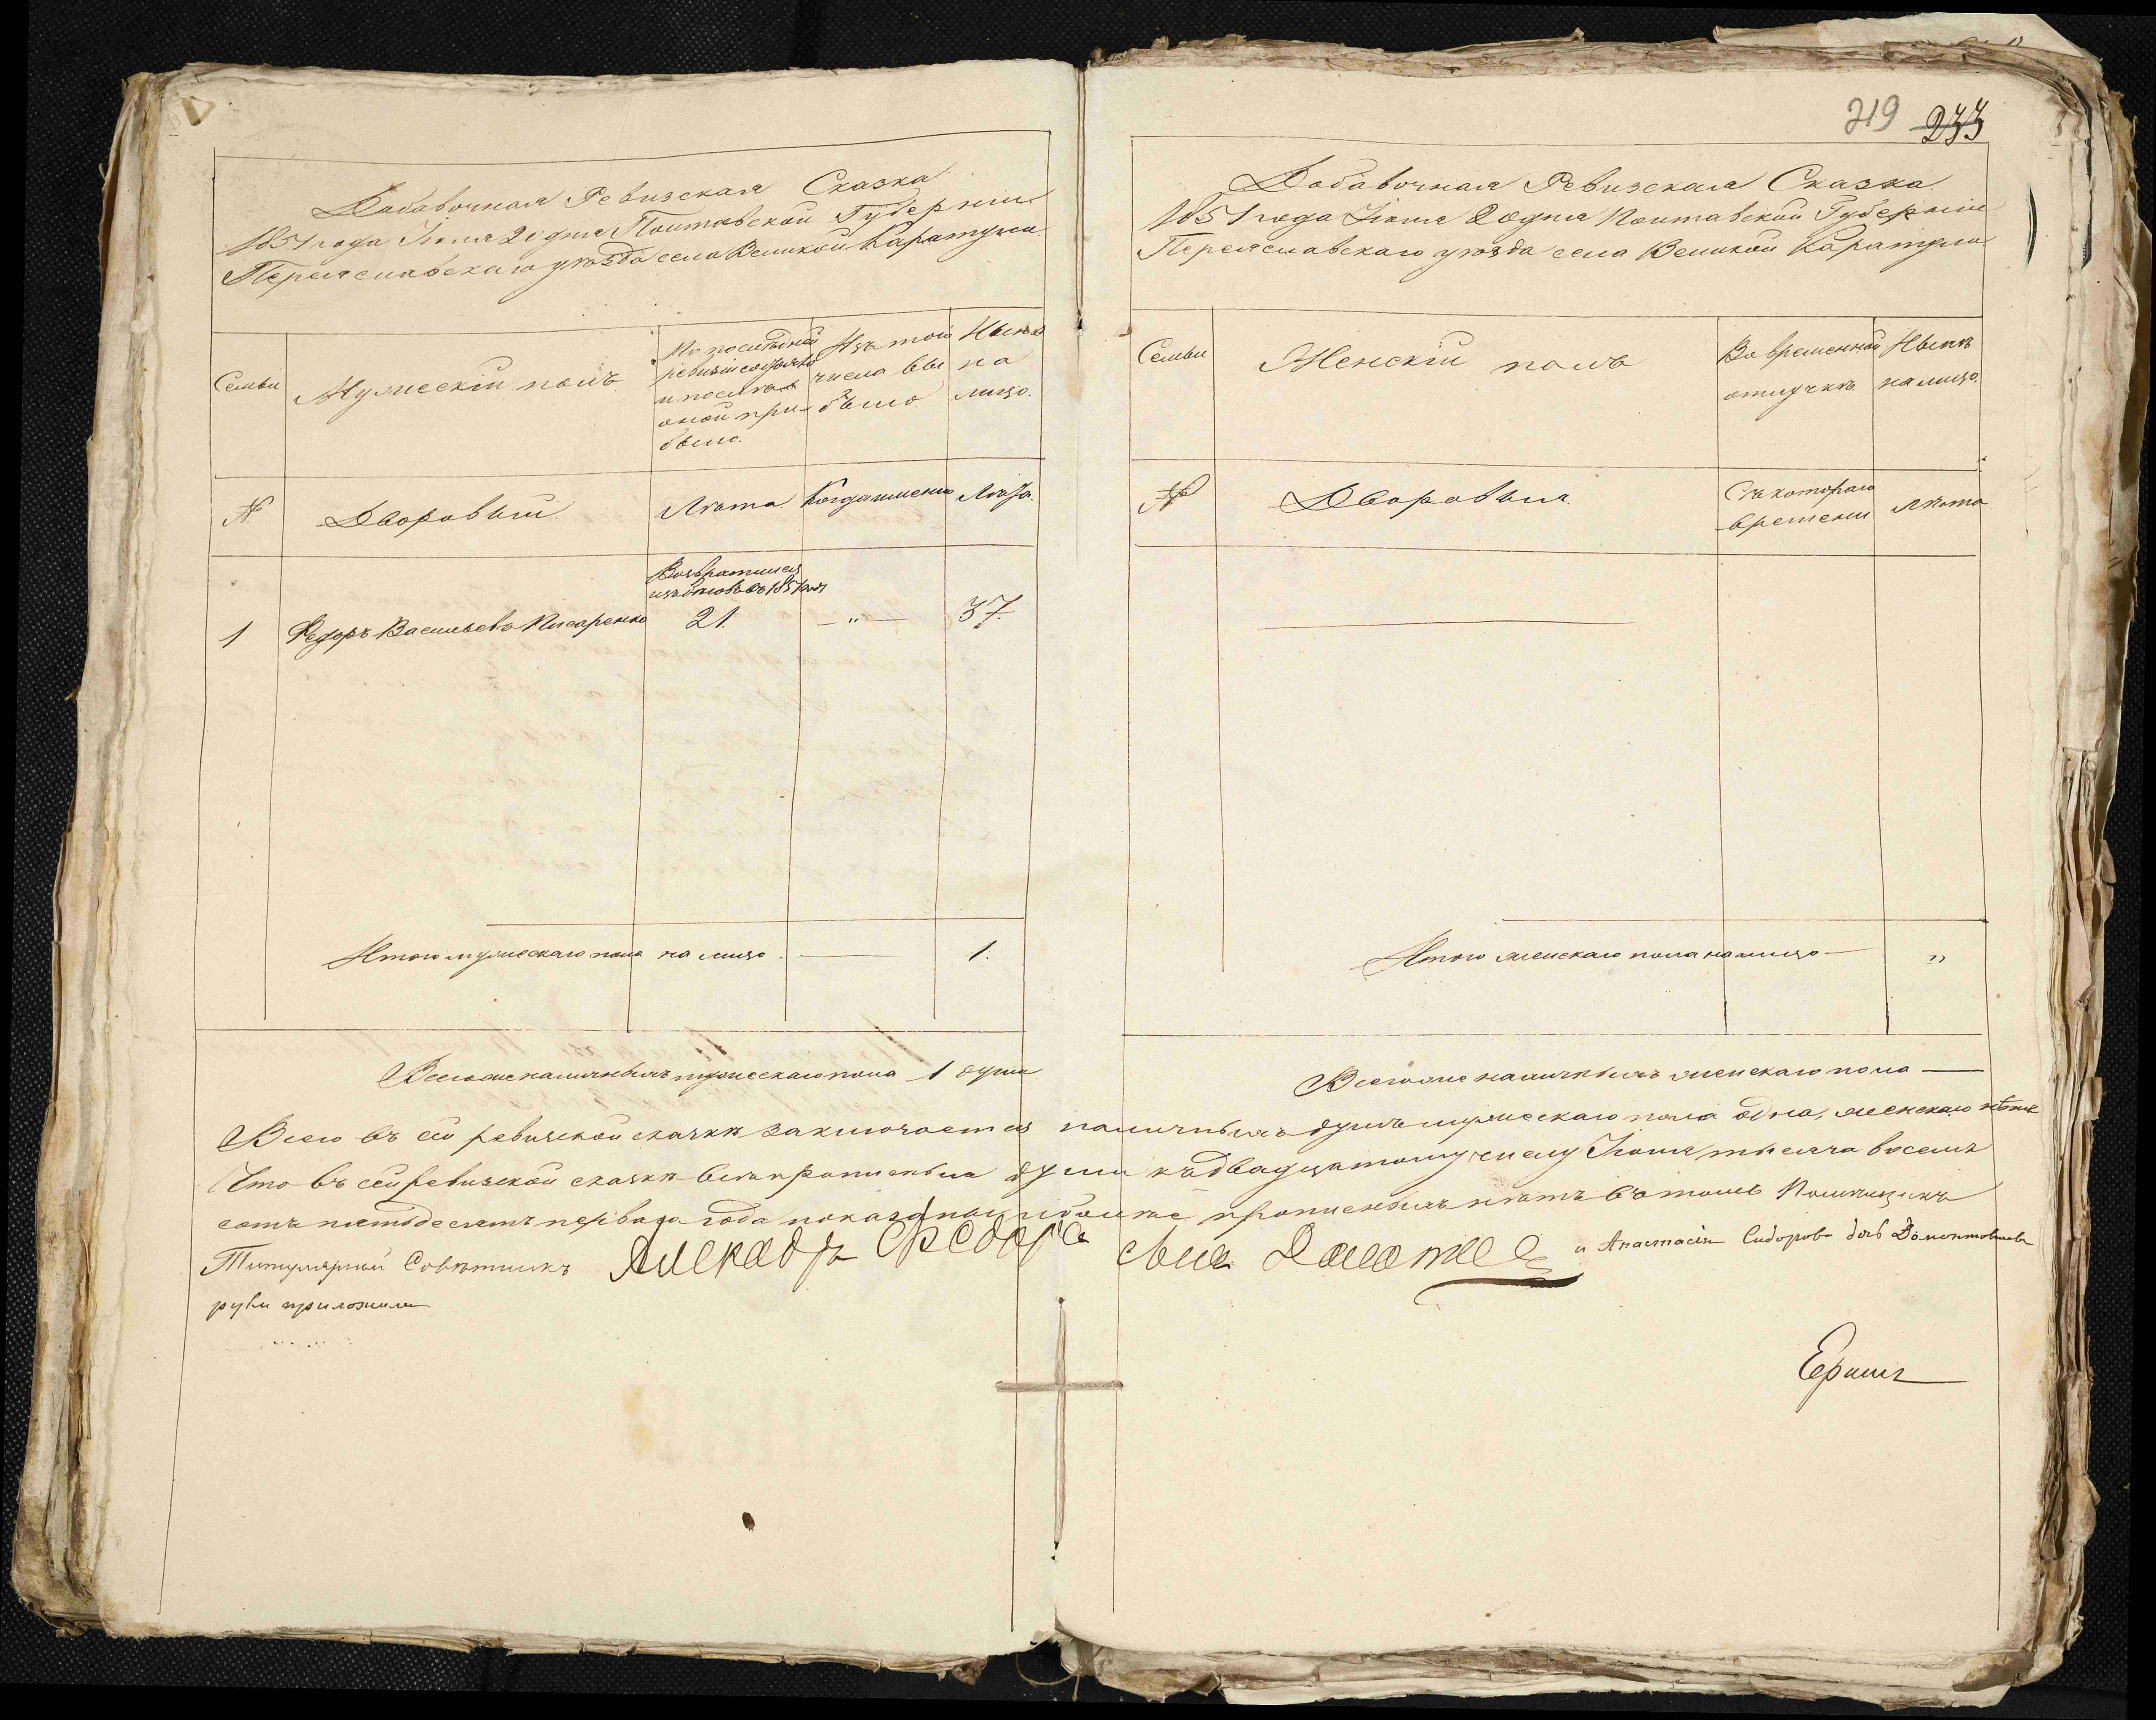 Добавочная Ревизская Сказка
1851 года Іюня 20 дня Полтавской Губерніи
Переяславскаго уѣзда села Великой Каратули
Семьи
Мужескій полъ
По последней
ревизіи состояло
и после
оной при-
было.
Изъ того
числа вы
было
Нынѣ
на
лицо.
№
Дворовый
Лѣта
Когда именно
Лѣта.
Возвратился
изъ бѣговъ въ 1851 году
1
Федоръ Васильевъ Писаренко
21.
— " —
37.
Итого мужескаго пола на лицо
1.
Всего же наличныхъ мужескаго пола 1 душа
219 233
Добавочная Ревизская Сказка
1851 года Іюня 20 дня Полтавской Губерніи
Переяславскаго уѣзда села Великой Каратули
Семьи
Женскій полъ
Во временной
отлучкѣ
Нынѣ
на лицо.
№
Дворовыя
Съ котораго
времени
Лѣта
Итого женскаго пола на лицо —
"
Всего же наличныхъ женскаго пола —
Всего въ сей ревизской сказкѣ заключается наличныхъ душъ мужескаго пола одна, женскаго
Что въ сей ревизской сказкѣ всѣ прописныя души къ двадцатому числу Іюня тысяча восемь
сотъ пятдесятъ перваго года показаны и болѣе прописныхъ нѣтъ въ томъ Помѣщики
Титулярный Совѣтникъ Александръ Федоровъ сынъ и Анастасія Сидорова дочь Домонтовичева
руки приложили